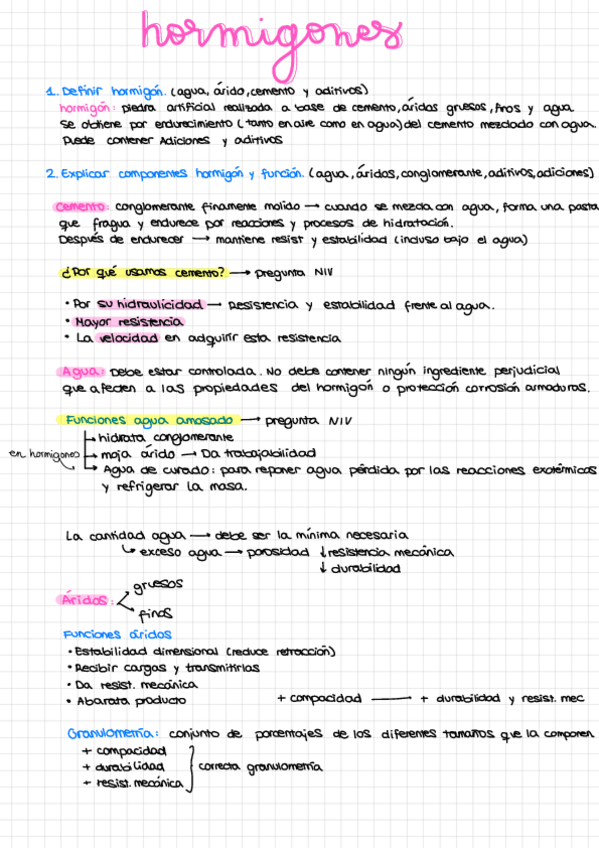 hormigones
1. Definir hormigón. (agua, árido, cemento y aditivos)
hormigón: piedra artificial realizada a base de cemento, áridos gruesos, finos y agua
Se obtiene por endurecimiento (tanto en aire como en agua) del cemento mezclado con agua.
Puede contener Adiciones y aditivos
2. Explicar componentes hormigón y función. (agua, áridos, conglomerante, aditivos, adiciones)
Cemento: conglomerante finamente molido → cuando se mezcla con agua, forma una pasta
que fragua y endurece por reacciones y procesos de hidratación.
Después de endurecer → mantiene resist y estabilidad (incluso bajo el agua)
¿Por qué usamos cemento? → pregunta NIV
• Por su hidraulicidad → Resistencia y estabilidad frente al agua.
• Mayor resistencia
• La velocidad en adquirir esta resistencia
Agua: Debe estar controlada. No debe contener ningún ingrediente perjudicial
que afecten a las propiedades del hormigón o protección corrosión armaduras.
Funciones agua amasado → pregunta NIV
hidrata conglomerante
en hormigones moja árido → Da trabajabilidad
Agua de curado: para reponer agua pérdida por las reacciones exotérmicas
y refrigerar la masa.
La cantidad agua → debe ser la mínima necesaria
exceso agua → porosidad ↓ resistencia mecánica
↓ durabilidad
Áridos: gruesos
finos
Funciones áridos
• Estabilidad dimensional (reduce retracción)
• Recibir cargas y transmitirlas
• Da resist. mecánica
• Abarata producto + compacidad → + durabilidad y resist. mec
Granulometría: conjunto de porcentajes de los diferentes tamaños que la componen
+ compacidad
+ durabilidad correcta granulometría
+ resist. mecánica